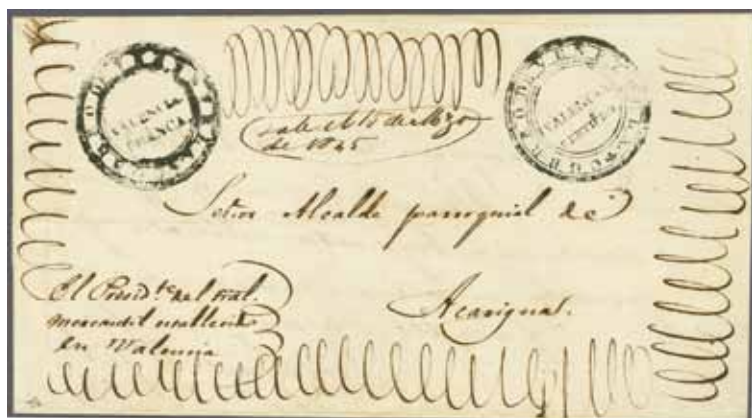 VALENCIA
FRANCA
VALENCIA
sale el 15 de Mzo
de 1845
Señor Alcalde parroquial de
Acarigua.
El Presid.te del tral.
mercantil establecido
en Valencia